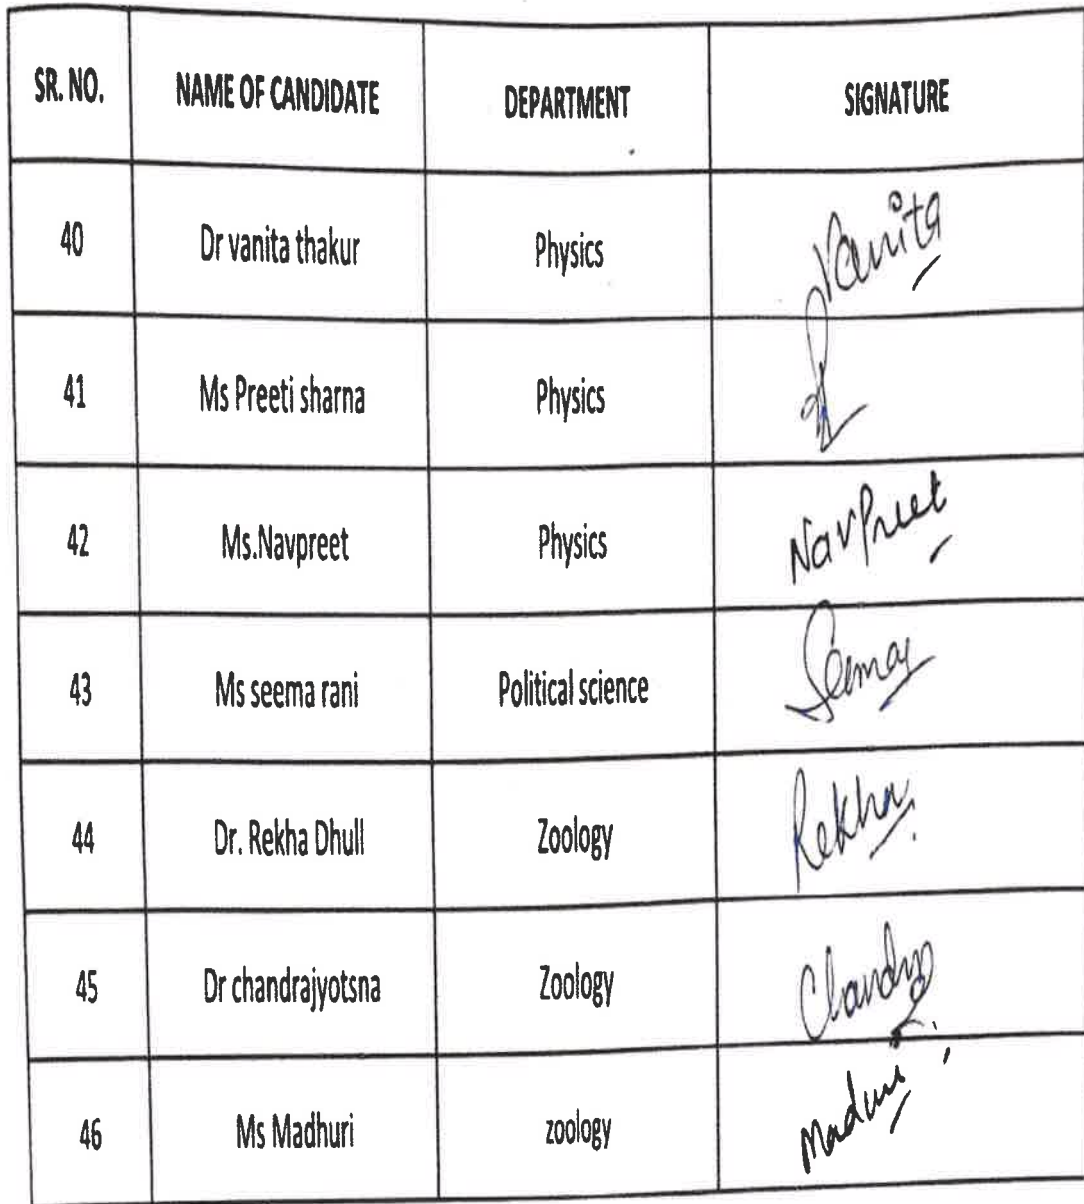 SR. NO. NAME OF CANDIDATE DEPARTMENT SIGNATURE
40 Dr vanita thakur Physics Vanita
41 Ms Preeti sharna Physics
42 Ms.Navpreet Physics NavPreet
43 Ms seema rani Political science Seema
44 Dr. Rekha Dhull Zoology Rekha
45 Dr chandrajyotsna Zoology
46 Ms Madhuri zoology